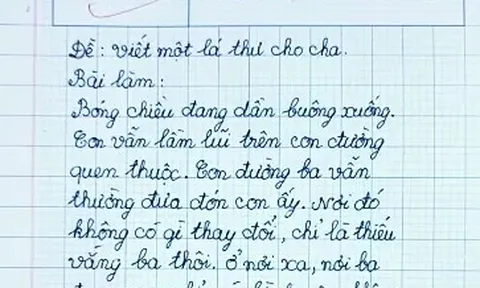 Đề: viết một lá thư cho cha.
Bài làm:
Bóng chiều đang dần buông xuống.
Con vẫn lầm lũi trên con đường
quen thuộc. Con đường ba vẫn
thường đưa đón con ấy. Nơi đó
không có gì thay đổi, chỉ là thiếu
vắng ba thôi. Ở nơi xa, nơi ba